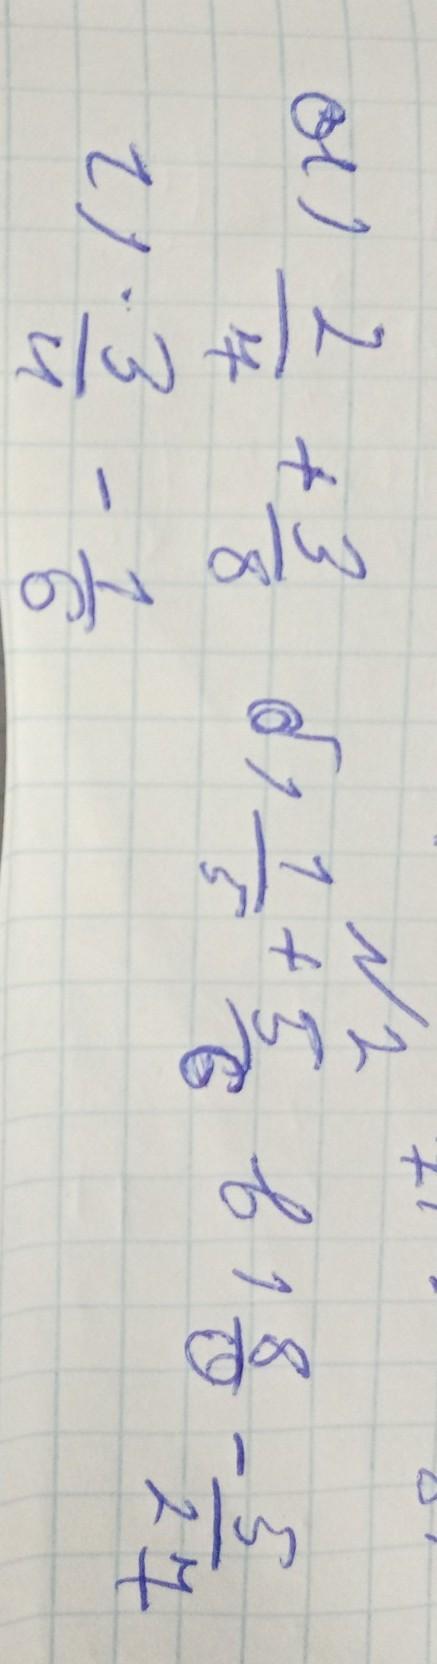 №2
а) 2/7 + 3/8 б) 1/5 + 5/6 в) 8/9 - 5/27
г) 3/4 - 1/6